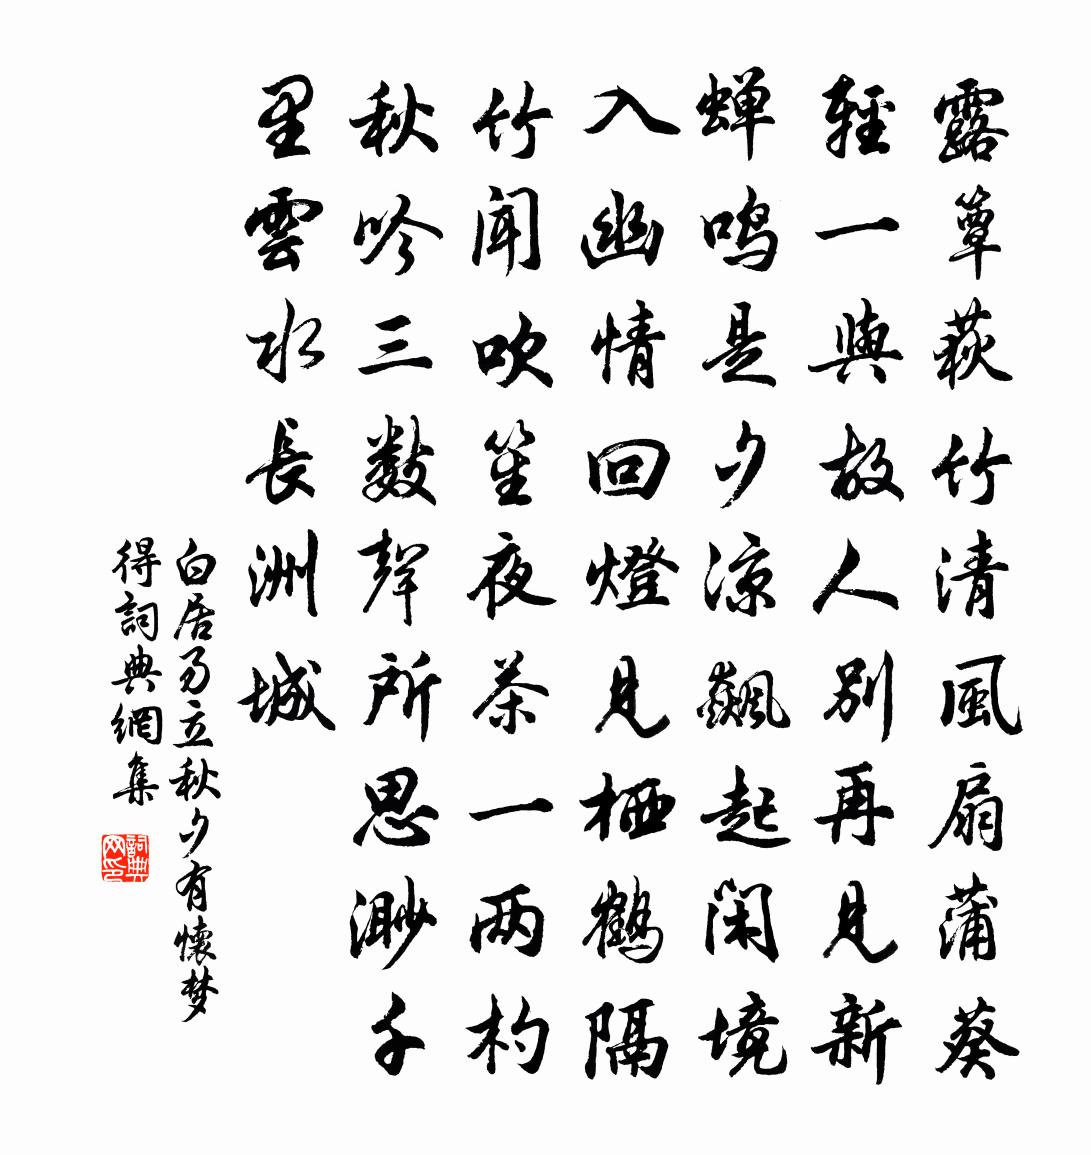 露簟荻竹清風扇蒲葵
輕一與故人別再見新
蝉鳴是夕涼飆起閑境
入幽情回燈見栖鶴隔
竹聞吹笙夜茶一两杓
秋吟三數聲所思渺千
里雲水長洲城
白居易立秋夕有懷梦
得詞典網集
詞典
网印